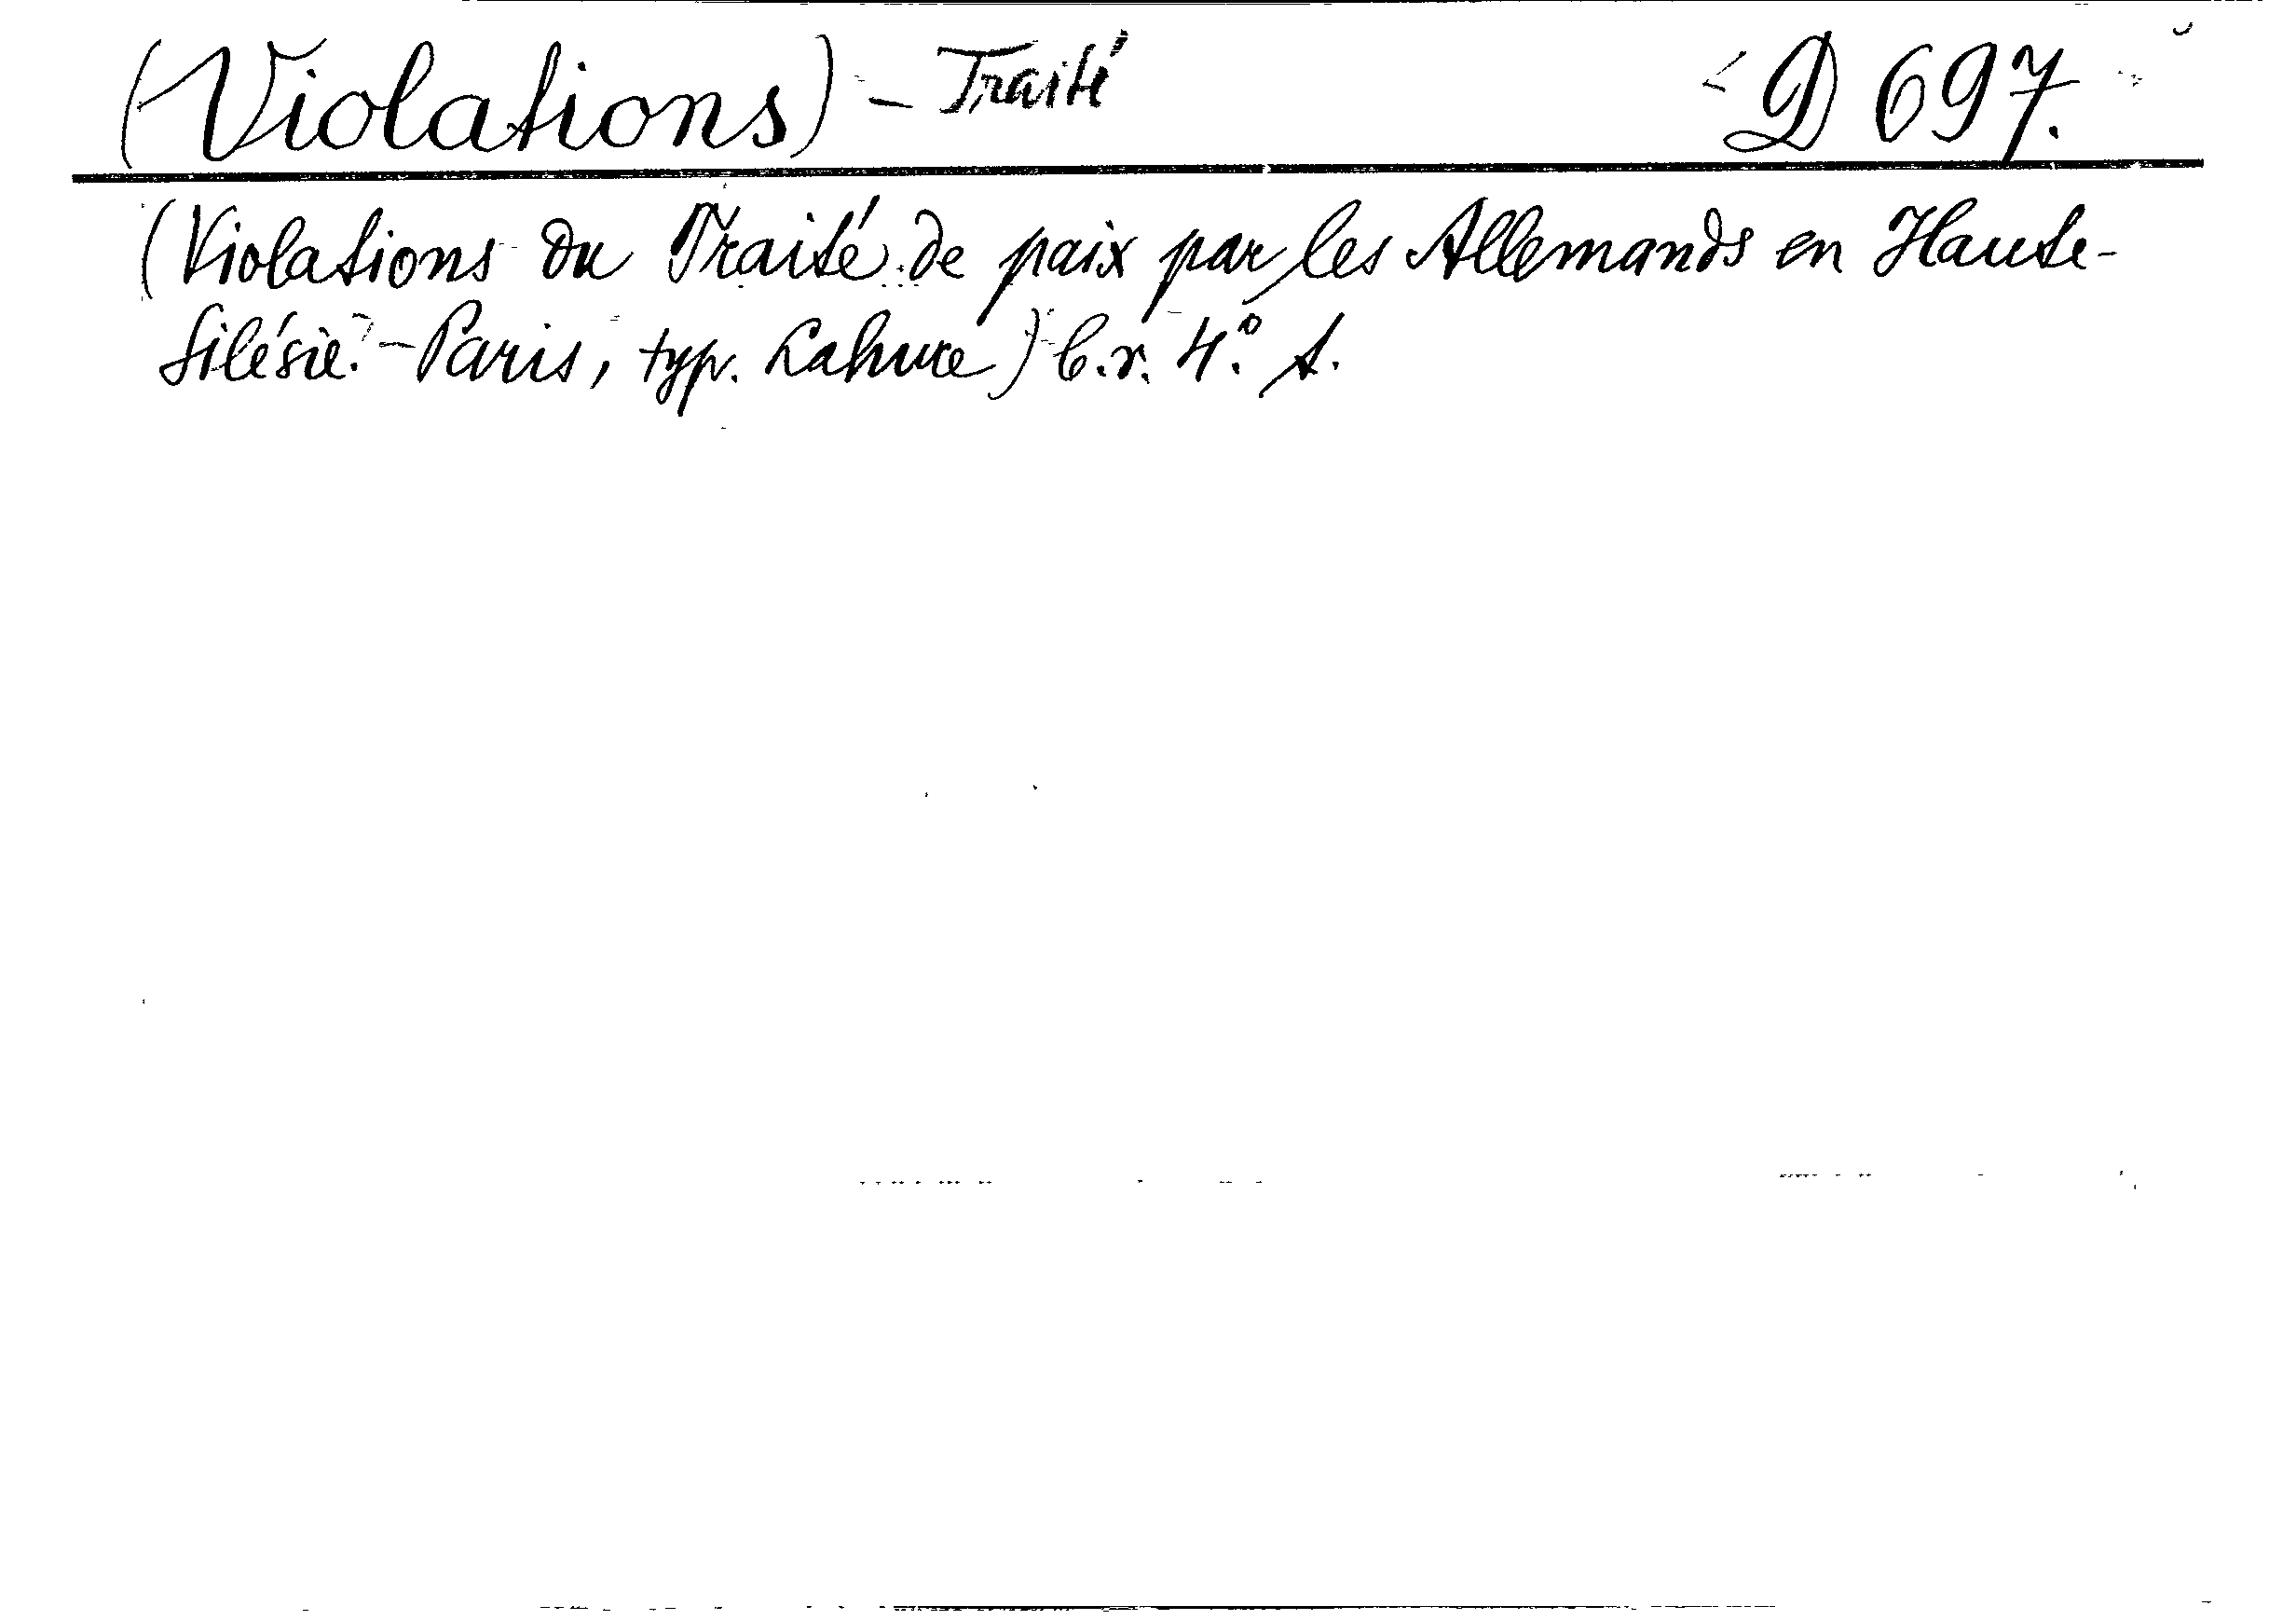 (Violations) - Traité D 697.
(Violations du Traité de paix par les Allemands en Haute-
Silésie. - Paris, typ. Lahure) b.r. 4.° s.